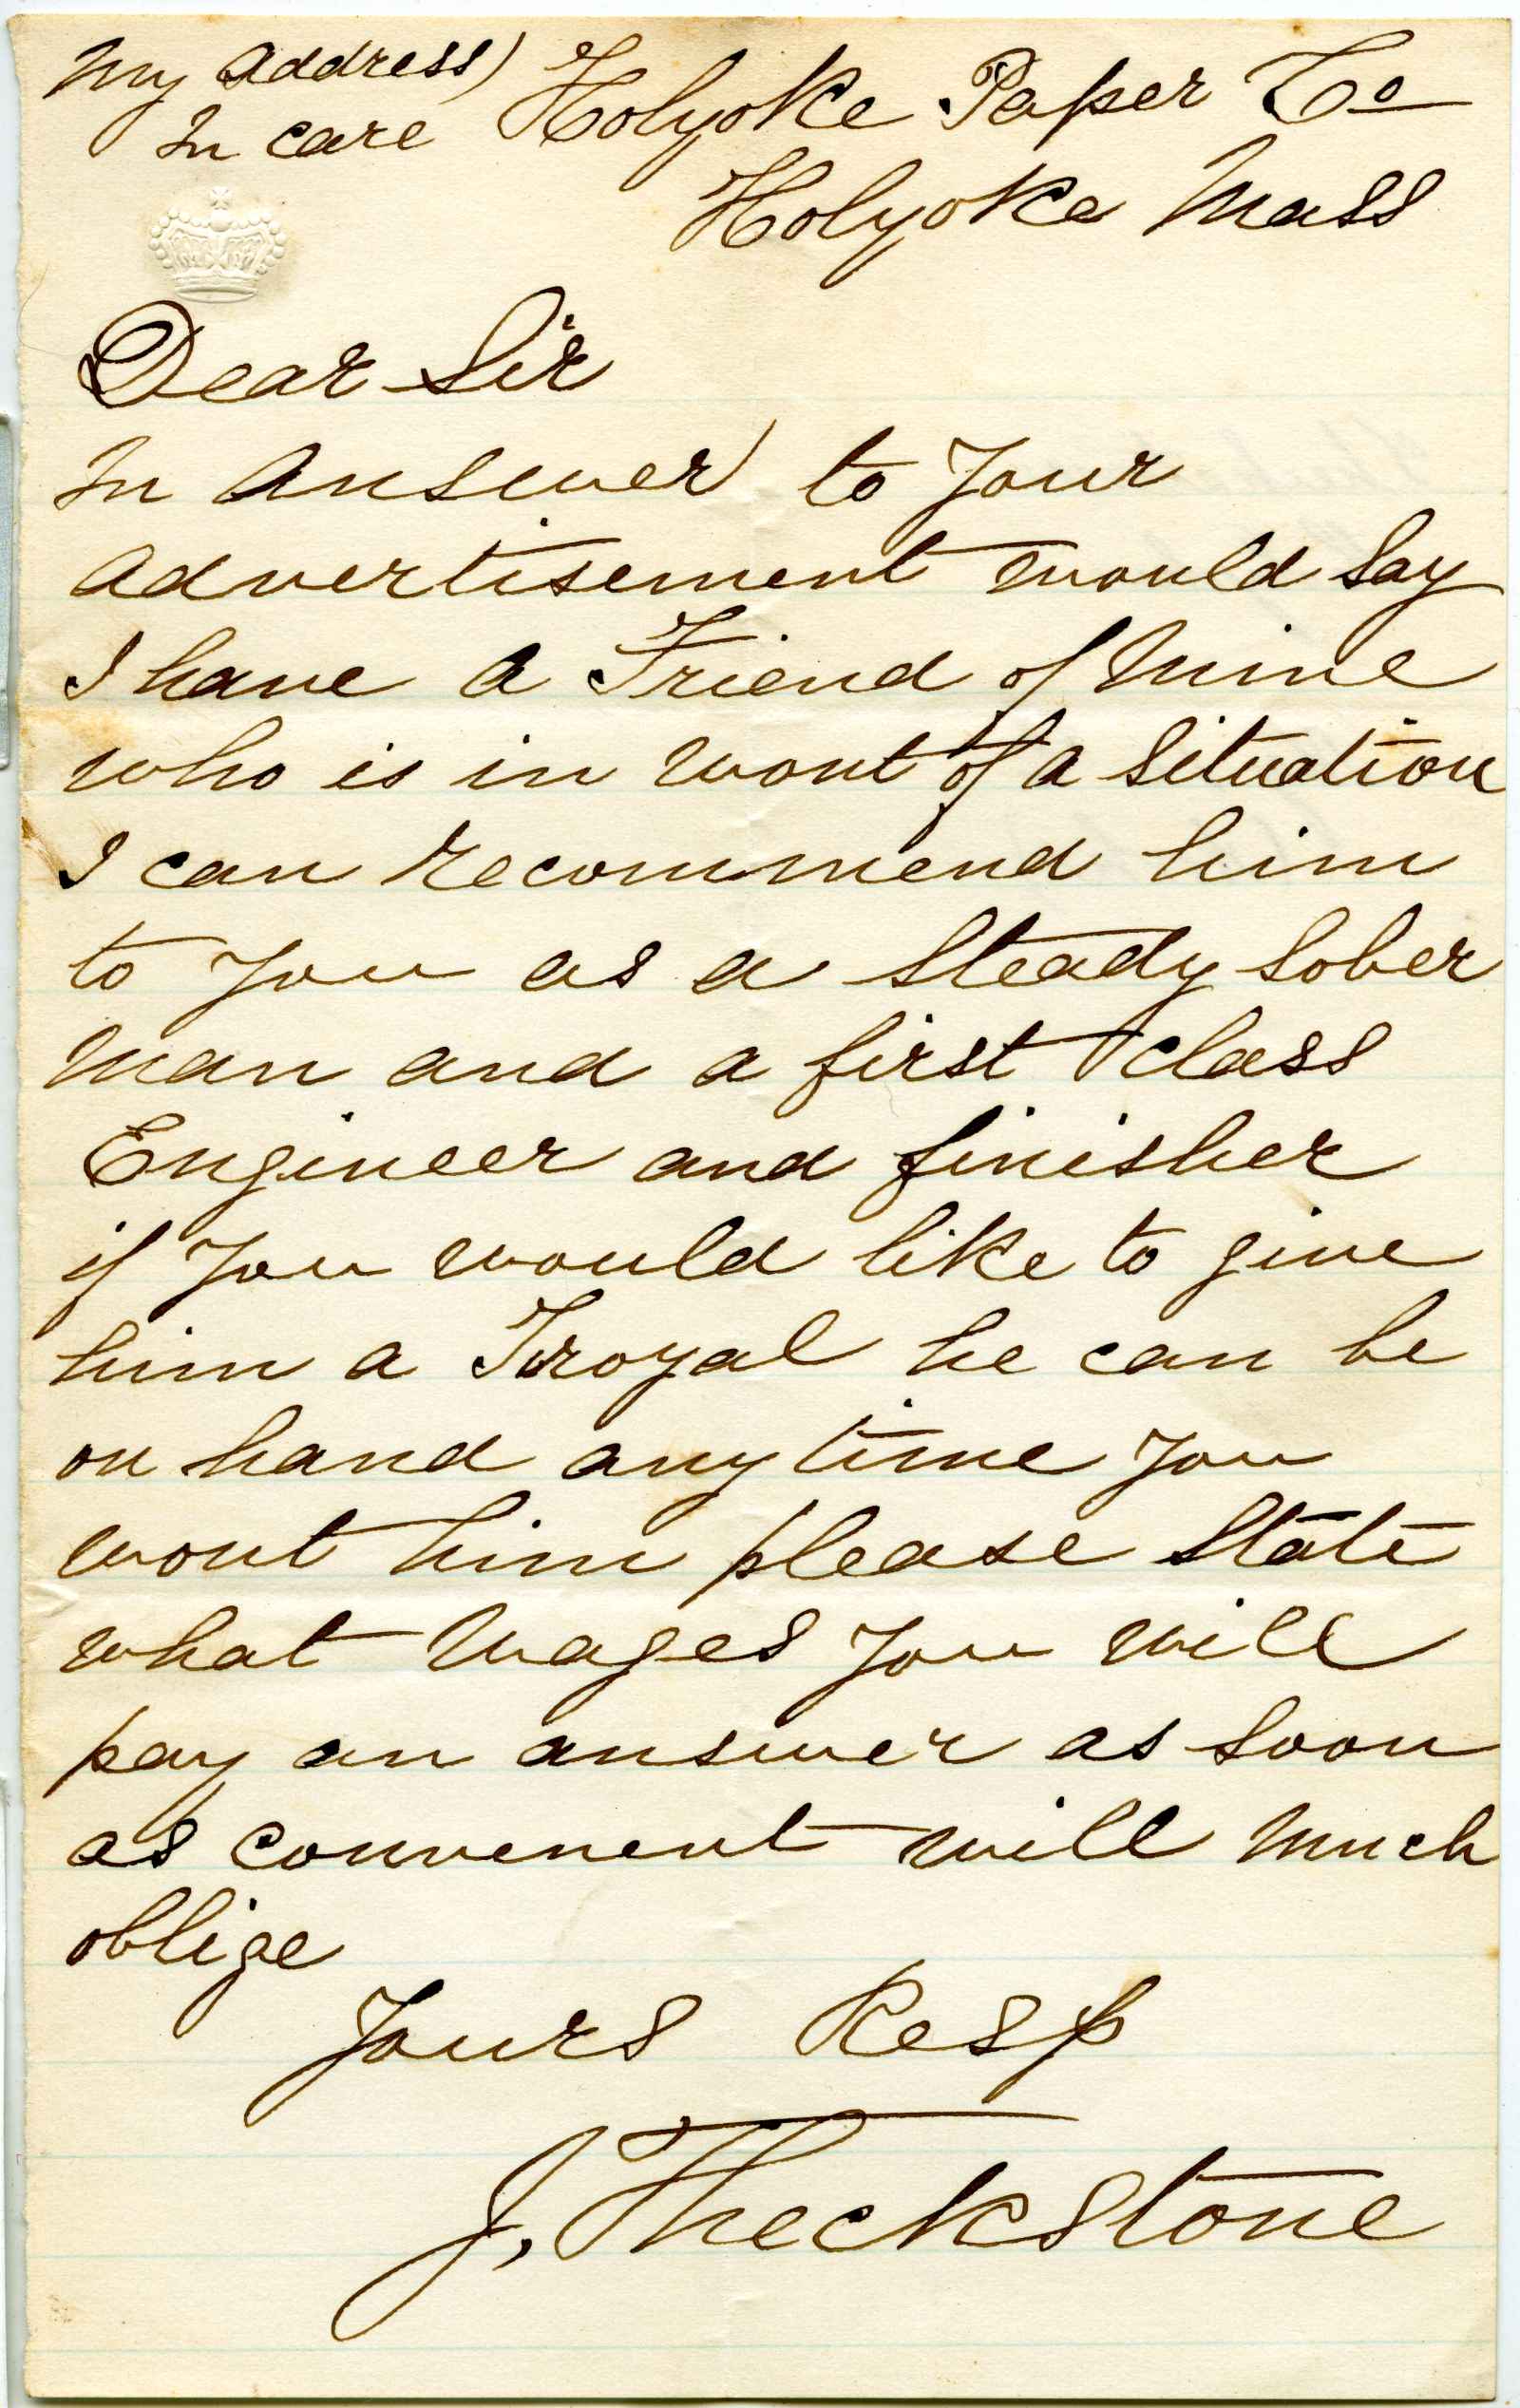 My address)
In care Holyoke Paper Co
Holyoke Mass
Dear Sir
In answer to Your
advertisement would Say
I have a Friend of Mine
who is in wont of a Situation
I can recommend him
to You as a Steady Sober
Man and a first class
Engineer and finisher
if You would like to give
him a Troyal he can be
on hand any time You
wont him please State
what Wages You will
pay an answer as Soon
as convenent will Much
oblige
Yours Resp
J. Theckstone